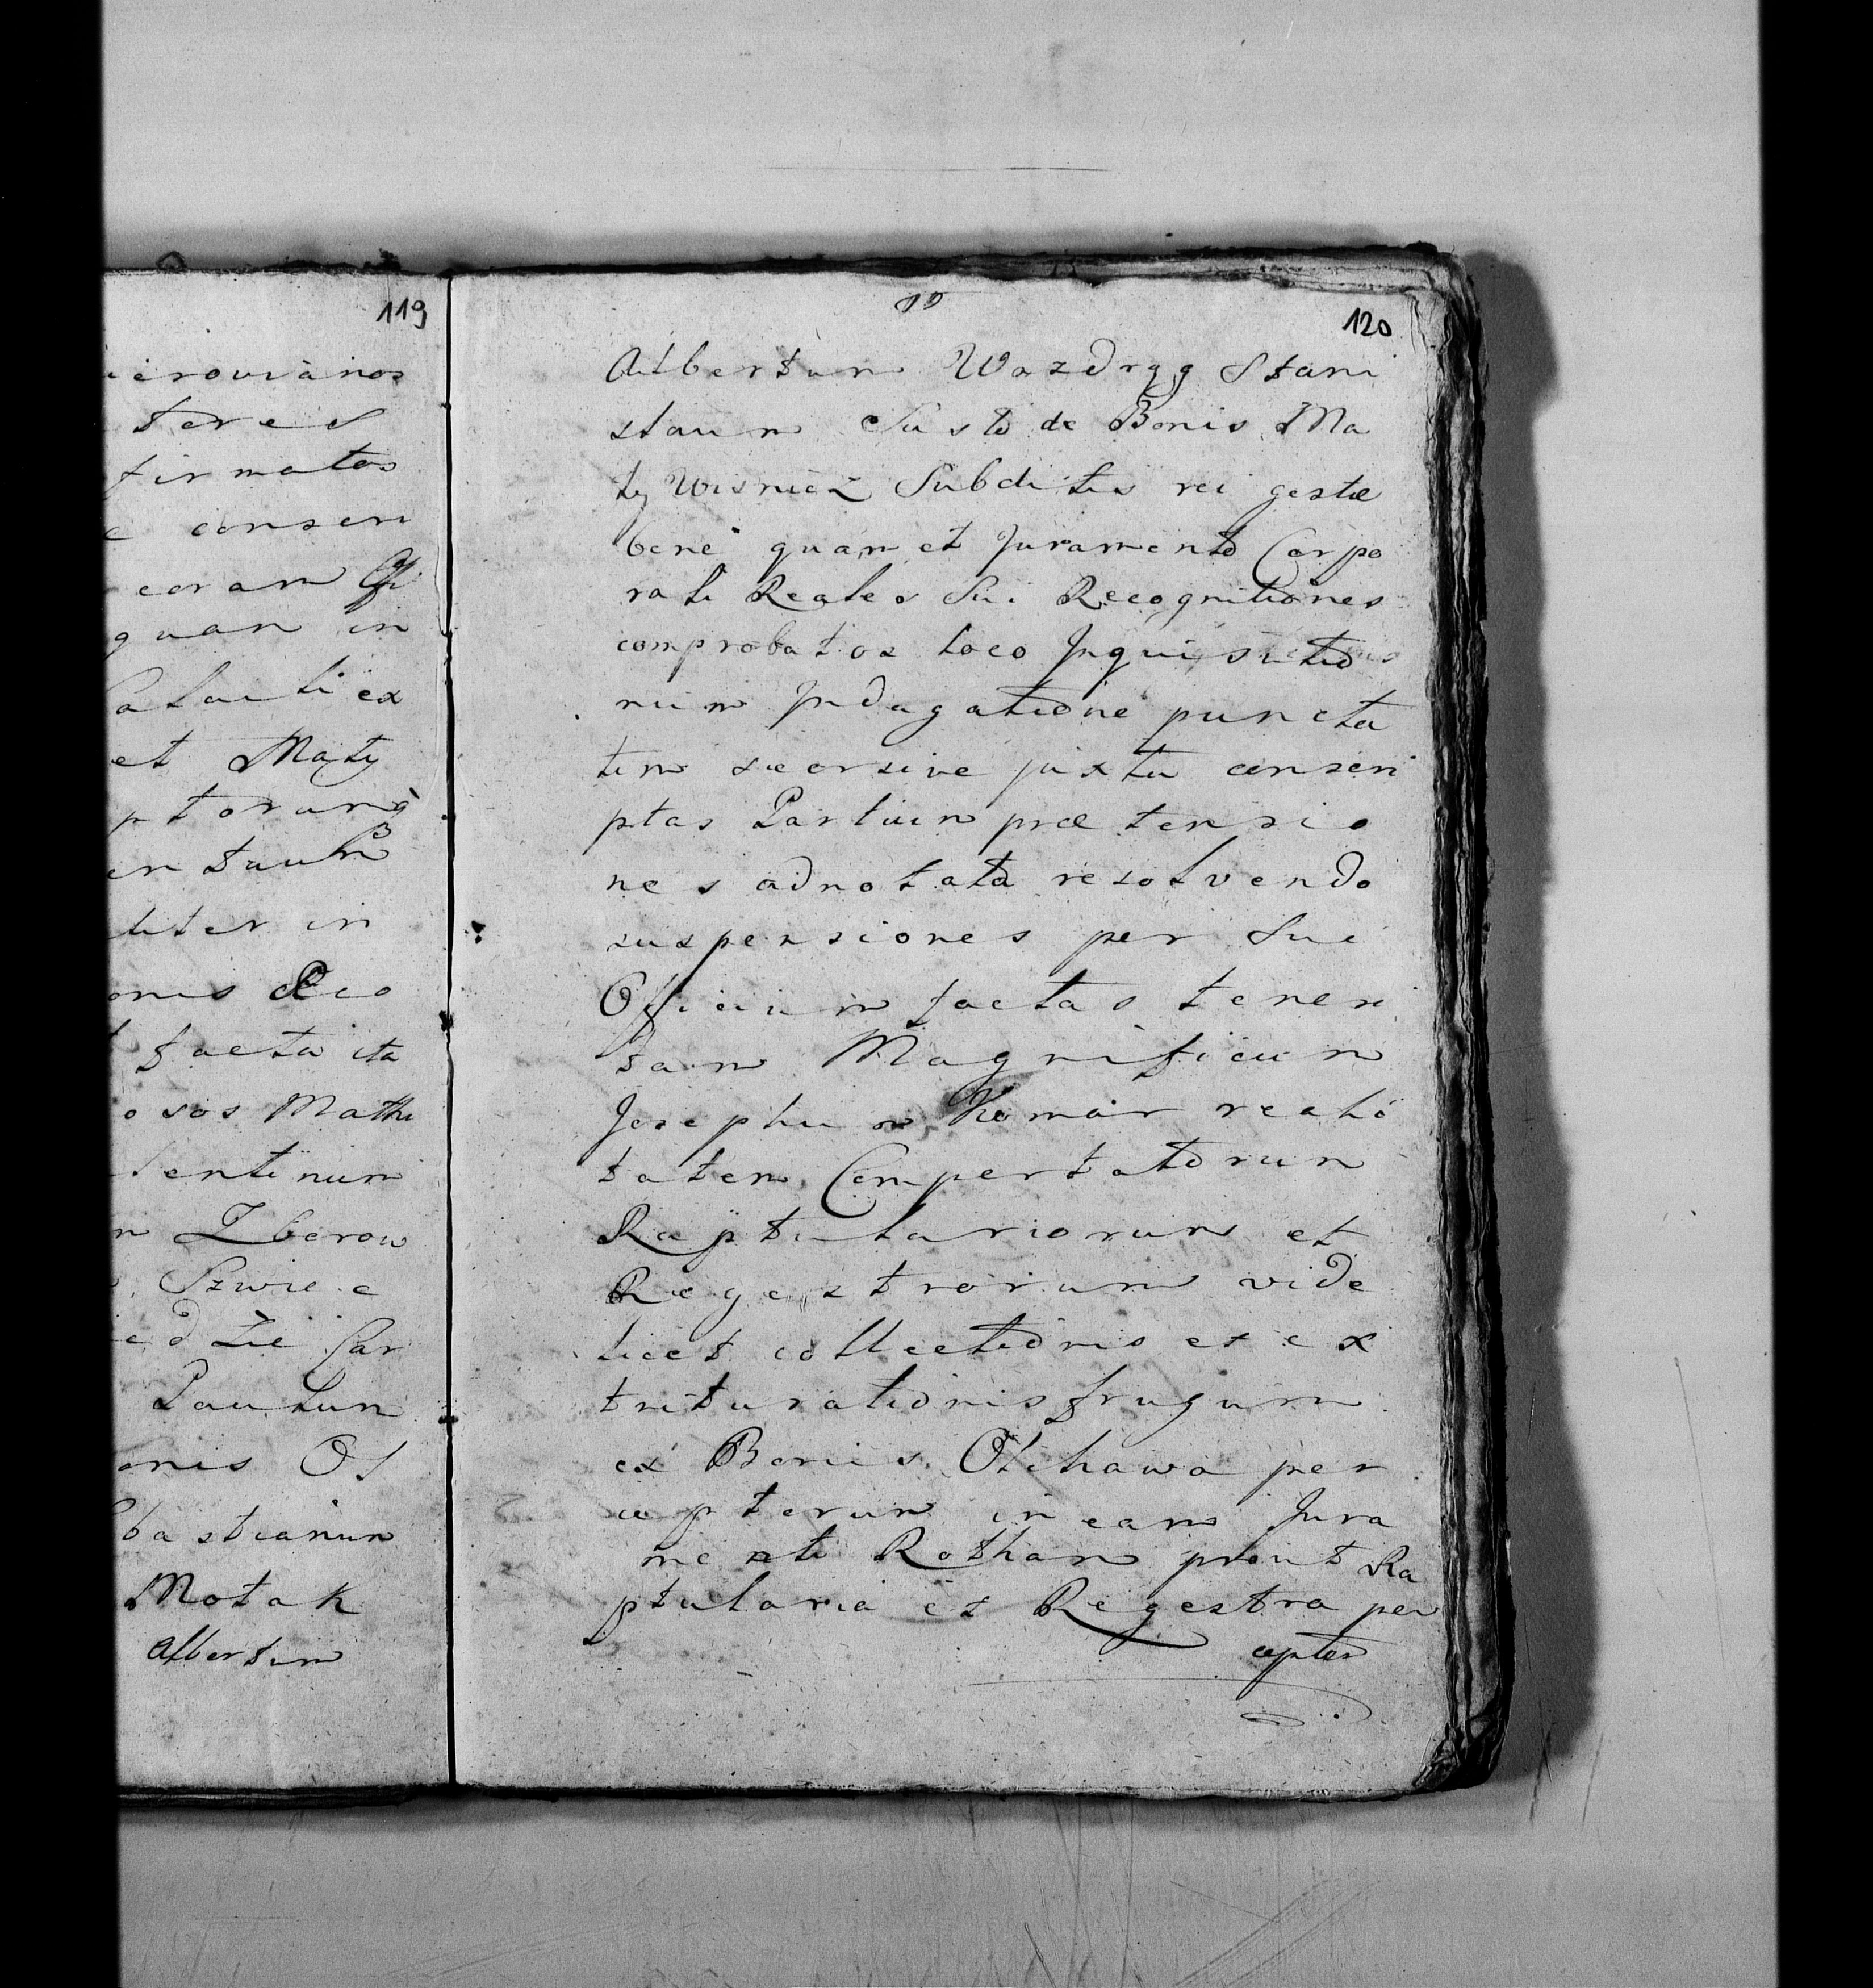 119
ierovianos
teres
firmatos
e conscri
coram Offi
quam in
Palatii ex
et Maty
ptorumq
liter in
onis Reo
facta ita
osos Mathi
lentinum
m Zborow
Szwiec
iedzie Car
Paulum
onis Ol
bastianum
Motak
Albertum
120
Albertum Wozdrgg Stani
slaum Susto de Bonis Ma
ty Wisnicz Subditis rei gestæ
bene quam et Juramento Corpo
rali Reales Sui Recognitiones
comprobatos loco Inquisitio
num Indagatione puncta
tim seorsive juxta conscri
ptas Partium præ tensio
nes adnotata resolvendo
suspensiones per Sue
Officium factas teneri
dam Magnificum
Josephum Komar reali
tatem Comportatorum
Raptulariorum et
Regestrorum vide
licet collectionis et ex
triturationis frugum
ex Bonis Olchawa per
ceptorum in eam Jura
menti Rotham prout Ra
ptularia et Regestra per
ceptor